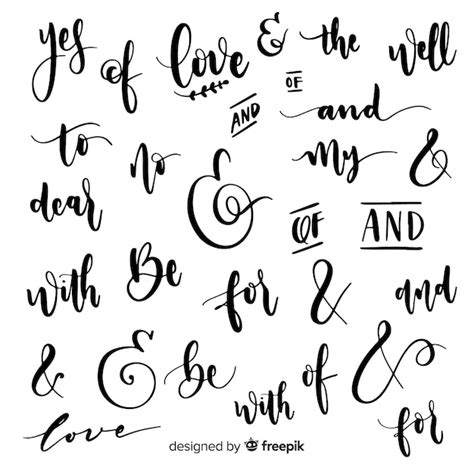 yes of love & the well
AND OF and
to no & my &
dear OF AND
with Be for & and
& & be with of &
love for
designed by freepik